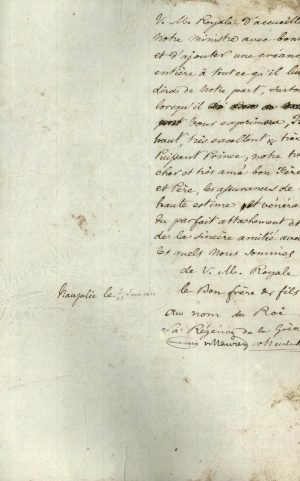 V. M. Royale d'accueillir
Notre Ministre avec bon
et d'ajouter une créance
entière à tout ce qu'il lui
dira de Notre part, surtout
lorsqu'il
pour exprimer
haut, très excellent et très
Puissant Prince, notre très
cher et très amé bon Frère
et Père, les assurances de
haute estime et vénéra
du parfait attachement et
de la sincère amitié avec
lesquels Nous sommes
de V. M. Royale
Nauplie le le Bon frère & fils
au nom du Roi
La Régence de la Grèce
Maurer Heideck